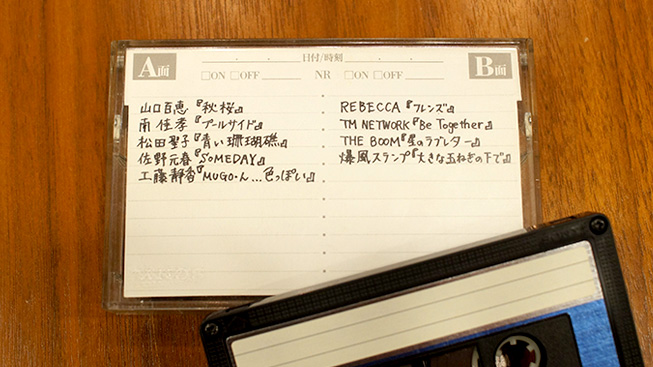 A面
日付/時刻
B面
□ON □OFF
NR
□ON □OFF
山口百恵『秋桜』
南佳孝『プールサイド』
松田聖子『青い珊瑚礁』
佐野元春『SOMEDAY』
工藤静香『MUGO・ん…色っぽい』
REBECCA『フレンズ』
TM NETWORK『Be Together』
THE BOOM『星のラブレター』
爆風スランプ『大きな玉ねぎの下で』